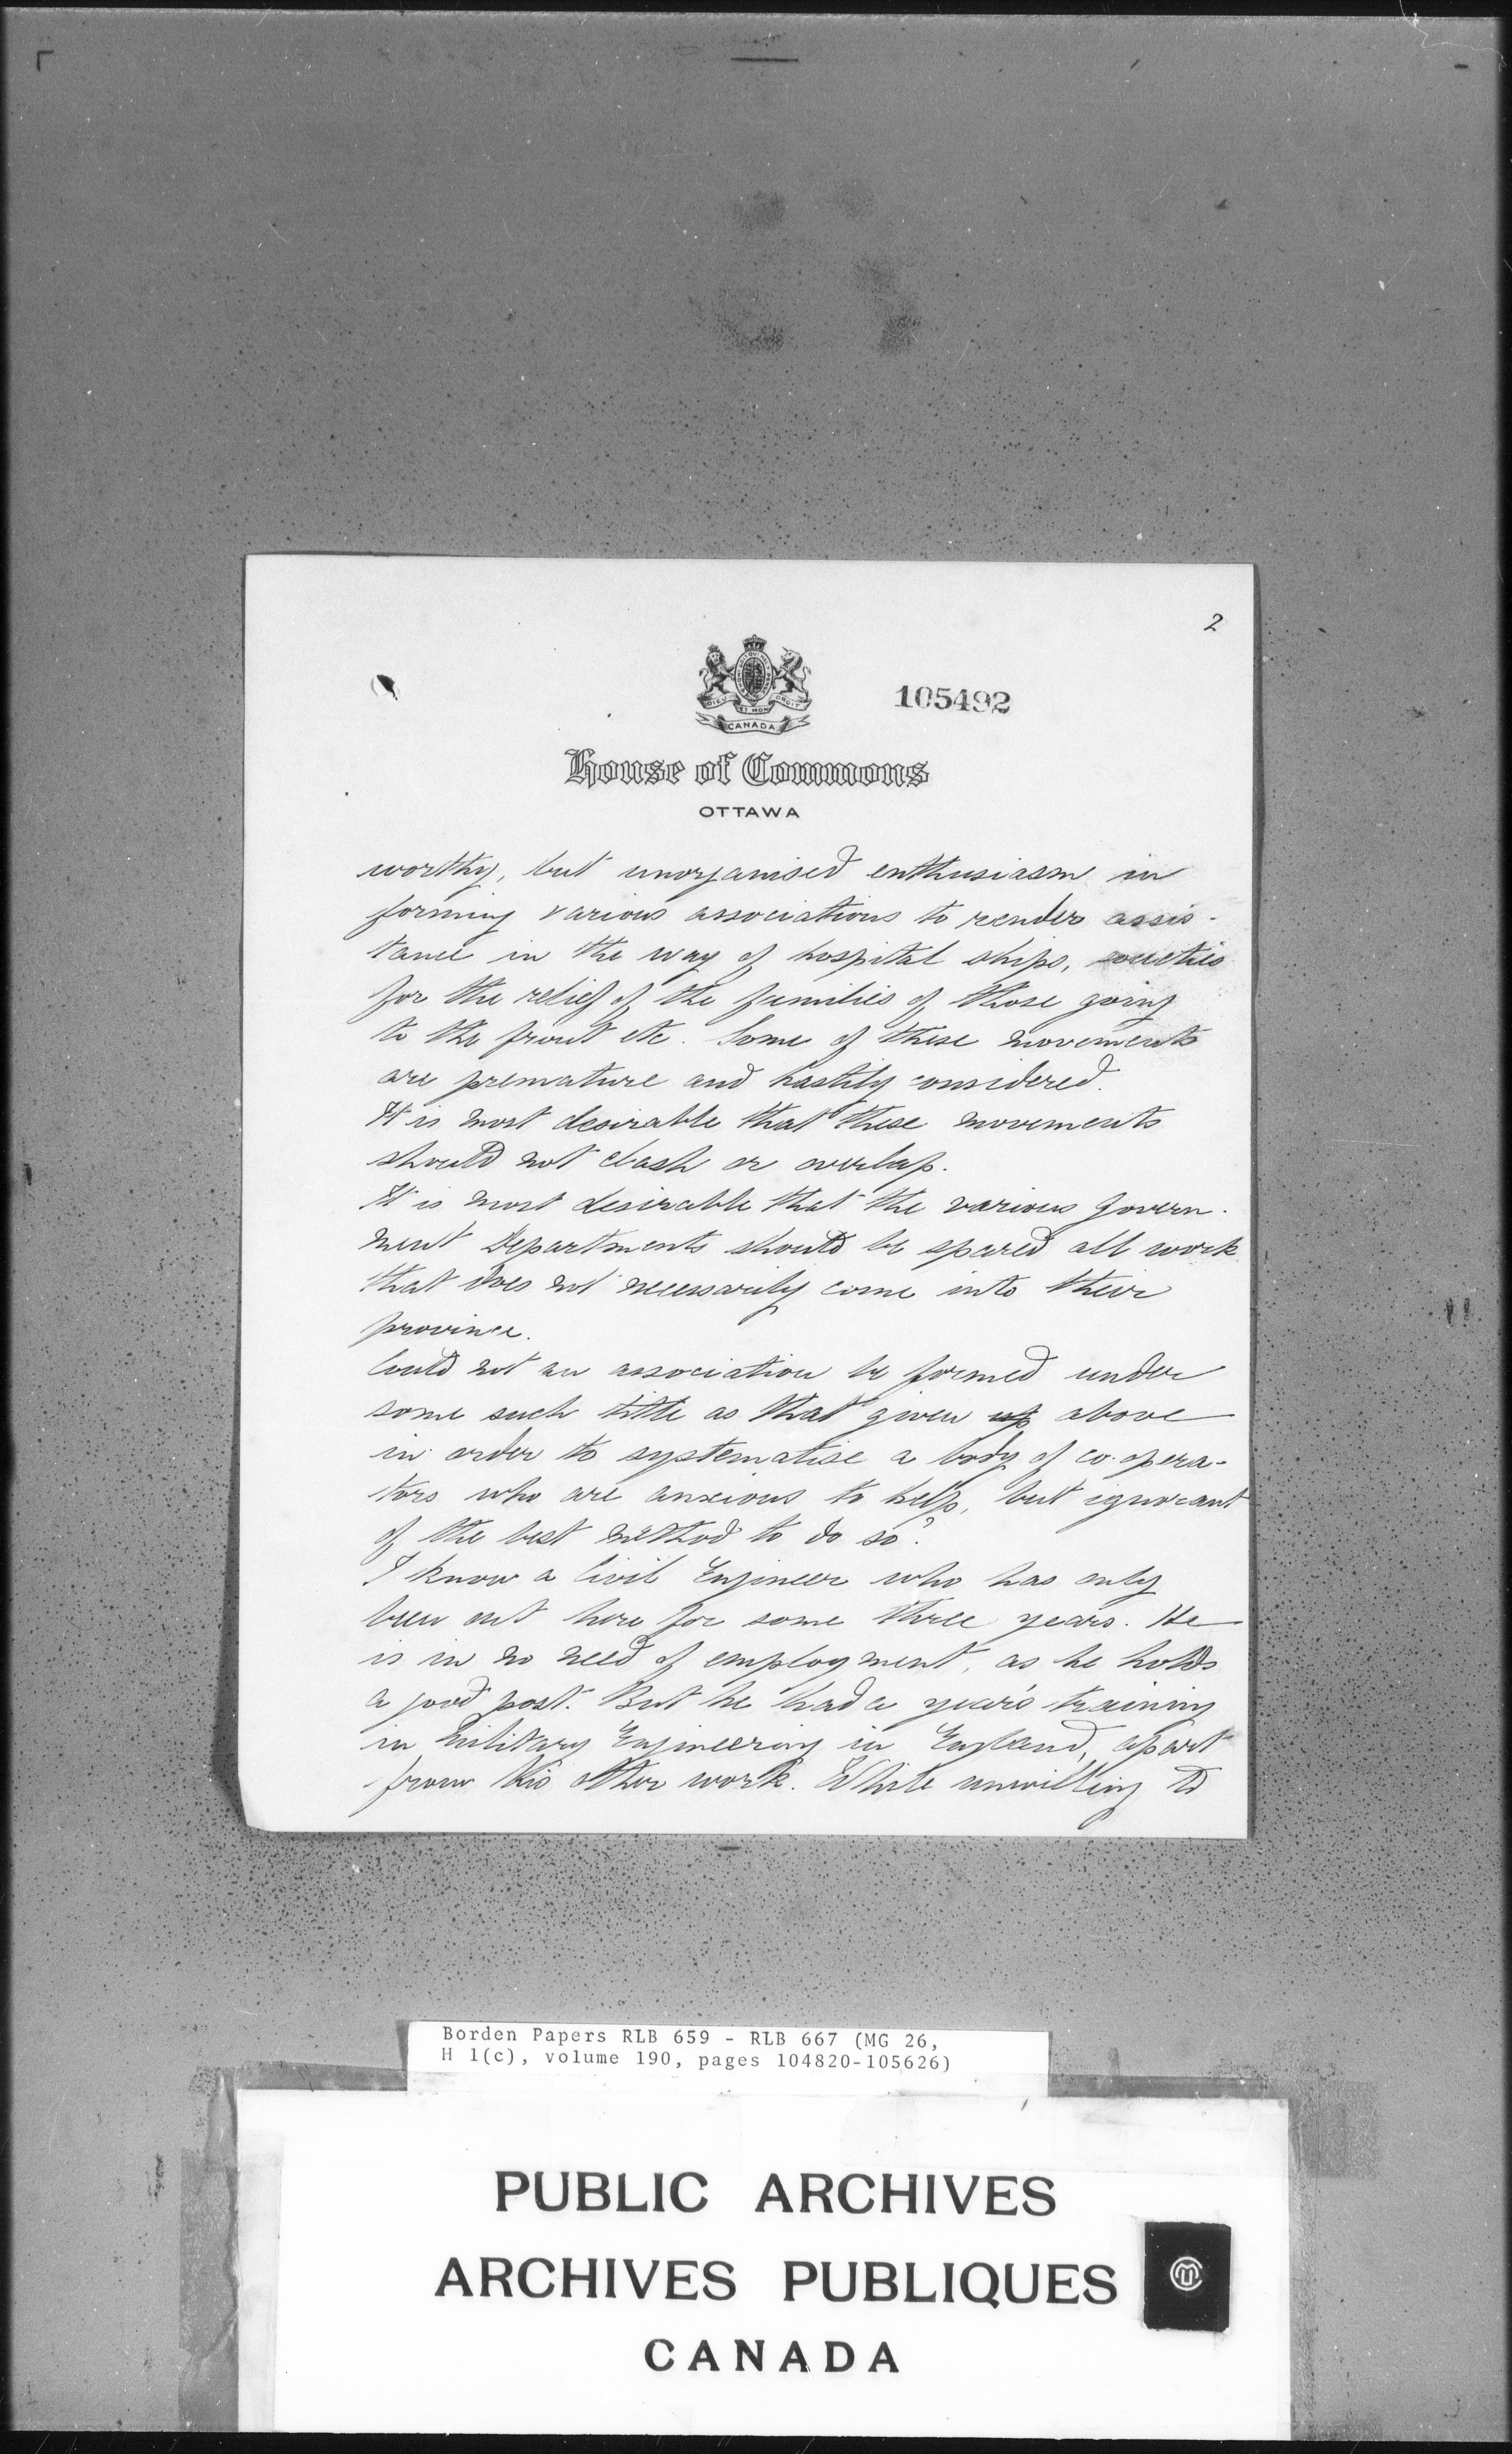 2
DIEU ET MON DROIT
CANADA
105492
House of Commons
OTTAWA
worthy, but unorganised enthusiasm in
forming various associations to render assis-
tance in the way of hospital ships, societies
for the relief of the families of those going
to the front etc. Some of these movements
are premature and hastily considered.
It is most desirable that these movements
should not clash or overlap.
It is most desirable that the various Govern-
ment Departments should be spared all work
that does not necessarily come into their
province.
Could not an association be formed under
some such title as that given up above
in order to systematise a body of co-opera-
tors who are anxious to help, but ignorant
of the best method to do so?
I know a Civil Engineer who has only
been out here for some three years. He
is in no need of employment, as he holds
a good post. But he had a year's training
in Military Engineering in England, apart
from his other work. While unwilling to
Borden Papers RLB 659 - RLB 667 (MG 26,
H 1(c), volume 190, pages 104820-105626)
PUBLIC ARCHIVES
ARCHIVES PUBLIQUES
CANADA